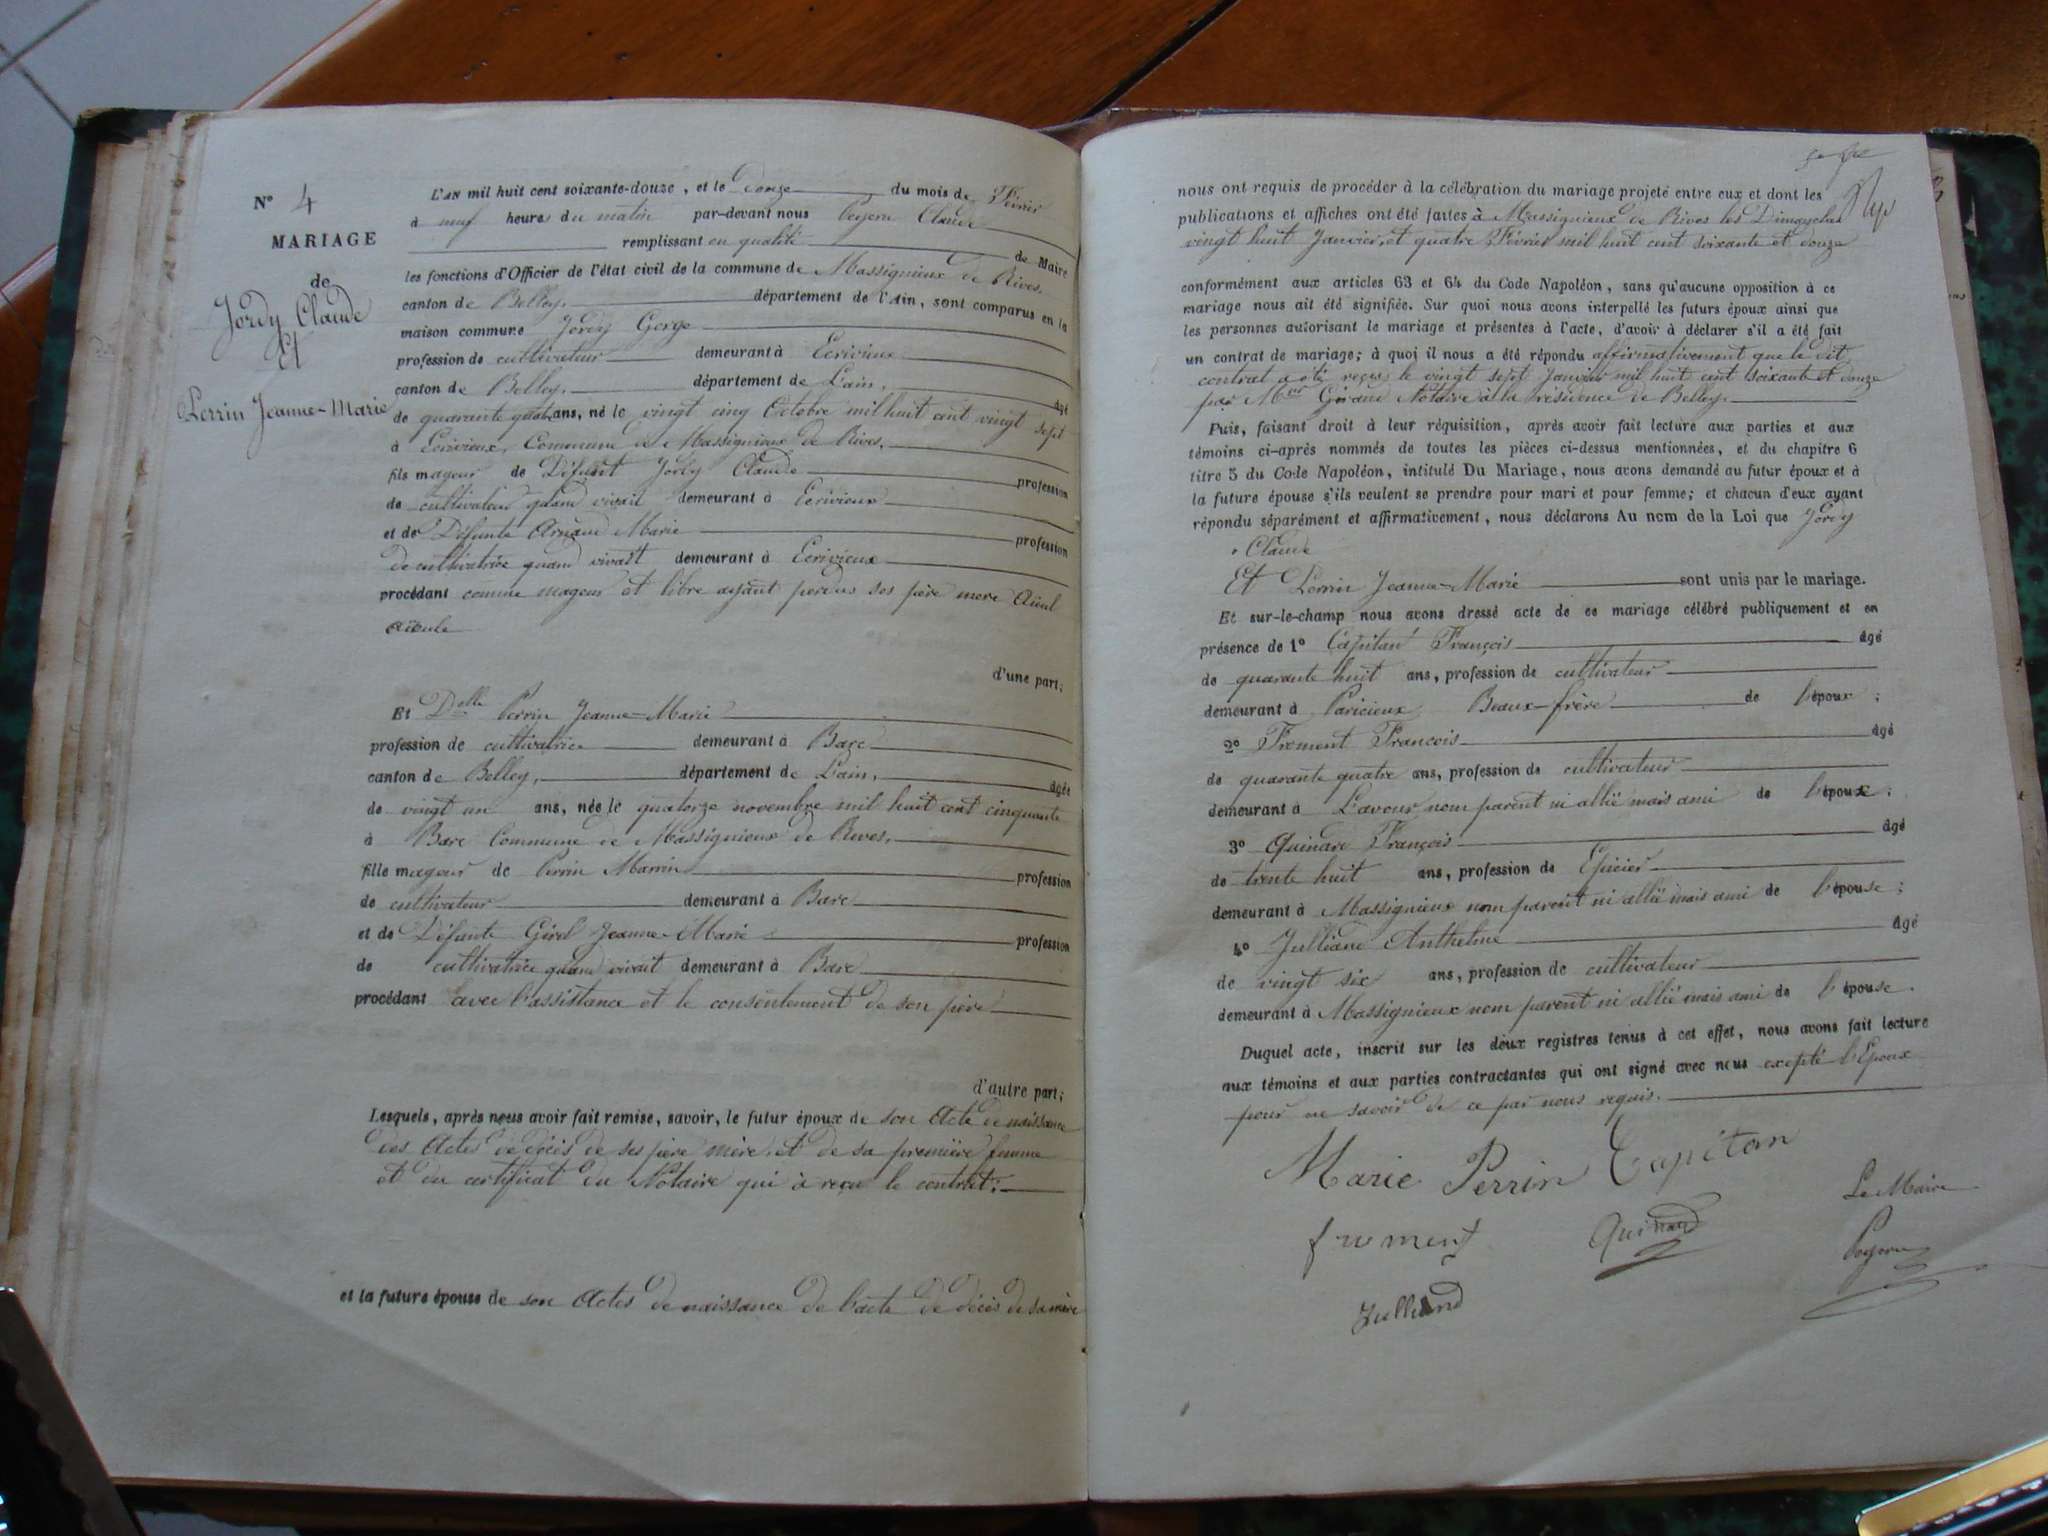 N° 4
MARIAGE
de
Jordy Claude
Et
Perrin Jeanne-Marie
L'AN mil huit cent soixante-douze, et le douze du mois de Février
à neuf heures du matin par-devant nous Peyern Claude
remplissant en qualité de Maire
les fonctions d'Officier de l'état civil de la commune de Massignieux de Rives.
canton de Belley, département de l'Ain, sont comparus en la
maison commune Jordy Gorge
profession de cultivateur demeurant à Ecrivieux
canton de Belley, département de L'ain, âgé
de quarante quatre ans, né le vingt cinq Octobre mil huit cent vingt sept
à Ecrivieux, Commune de Massignieux de Rives,
fils mageur de Défunt Jordy Claude profession
de cultivateur quand vivait demeurant à Ecrivieux
et de Défunte Arnaud Marie profession
de cultivatrice quand vivait demeurant à Ecrivieux
procédant comme mageur et libre ayant perdus ses père mere Aïeul
aïeule
d'une part;
Et Delle Perrin Jeanne-Marie
profession de cultivatrice demeurant à Barc
canton de Belley, département de L'ain, âgée
de vingt un ans, née le quatorze novembre mil huit cent cinquante
à Barc Commune de Massignieux de Rives,
fille mageur de Perrin Marrin profession
de cultivateur demeurant à Barc
et de Défunte Girel Jeanne-Marie profession
de cultivatrice quand vivait demeurant à Barc
procédant avec l'assistance et le consentement de son père
d'autre part;
Lesquels, après nous avoir fait remise, savoir, le futur époux de son Acte de naissance
des Actes de décès de ses père mère, et de sa première femme
et du certificat du Notaire qui à reçu le contrat;
et la future épouse de son Actes de naissance de l'acte de décès de sa mère
nous ont requis de procéder à la célébration du mariage projeté entre eux et dont les
publications et affiches ont été faites à Massignieux de Rives les Dimanches
vingt huit Janvier, et quatre Février mil huit cent soixante et douze
conformément aux articles 63 et 64 du Code Napoléon, sans qu'aucune opposition à ce
mariage nous ait été signifiée. Sur quoi nous avons interpellé les futurs époux ainsi que
les personnes autorisant le mariage et présentes à l'acte, d'avoir à déclarer s'il a été fait
un contrat de mariage; à quoi il nous a été répondu affirmativement que le dit
contrat a été reçus le vingt sept Janvier mil huit cent soixante et douze
par Mtre Giraud Notaire à la résidence de Belley.
Puis, faisant droit à leur réquisition, après avoir fait lecture aux parties et aux
témoins ci-après nommés de toutes les pièces ci-dessus mentionnées, et du chapitre 6
titre 5 du Code Napoléon, intitulé Du Mariage, nous avons demandé au futur époux et à
la future épouse s'ils veulent se prendre pour mari et pour femme; et chacun d'eux ayant
répondu séparément et affirmativement, nous déclarons Au nom de la Loi que Jordy
Claude
Et Perrin Jeanne-Marie sont unis par le mariage.
Et sur-le-champ nous avons dressé acte de ce mariage célébré publiquement et en
présence de 1° Capitan François âgé
de quarante huit ans, profession de cultivateur
demeurant à Paricieux Beaux-frère de l'époux;
2° Froment François âgé
de quarante quatre ans, profession de cultivateur
demeurant à Lavour nom parent ni allié mais ami de l'époux;
3° Quinard François âgé
de trente huit ans, profession de Epicier
demeurant à Massignieux nom parent ni allié mais ami de l'épouse;
4° Julliand Anthelme âgé
de vingt six ans, profession de cultivateur
demeurant à Massignieux nom parent ni allié mais ami de l'épouse.
Duquel acte, inscrit sur les deux registres tenus à cet effet, nous avons fait lecture
aux témoins et aux parties contractantes qui ont signé avec nous excepté l'Epoux
pour ne savoir de ce par nous requis.
Marie Perrin Capitan
Le Maire
froment Quinard Peyern
Julliand